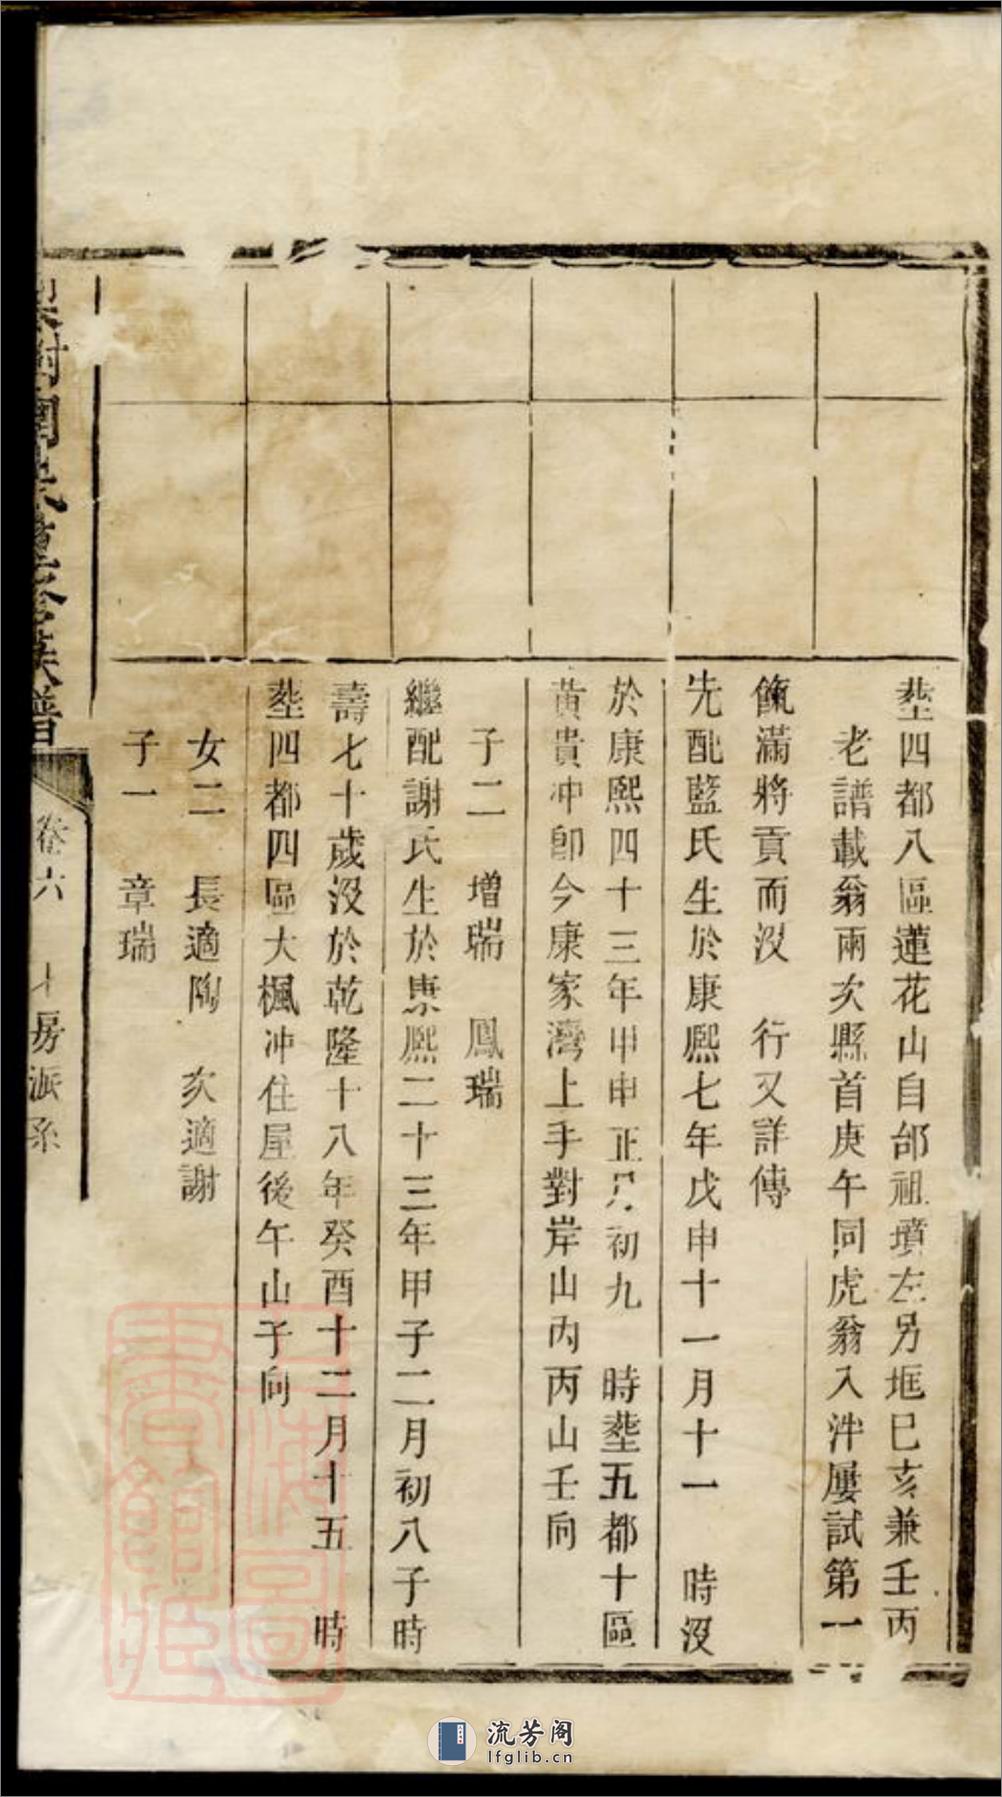 塟四都八區蓮花山自邰祖墳左另垇巳亥兼壬丙
老譜載翁兩次縣首庚午同虎翁入泮屢試第一
餼滿將貢而沒 行又詳傳
先配藍氏生於康熙七年戊申十一月十一 時沒
於康熙四十三年甲申正月初九 時塟五都十區
黃貴冲卽今康家灣上手對岸山內丙山壬向
子二 增瑞 鳳瑞
繼配謝氏生於康熙二十三年甲子二月初八子時
壽七十歲沒於乾隆十八年癸酉十二月十五 時
塟四都四區大楓冲住屋後午山子向
女二 長適陶 次適謝
子一 章瑞
族譜
卷六 房派系
上海圖書館藏
流芳阁
lfglib.cn